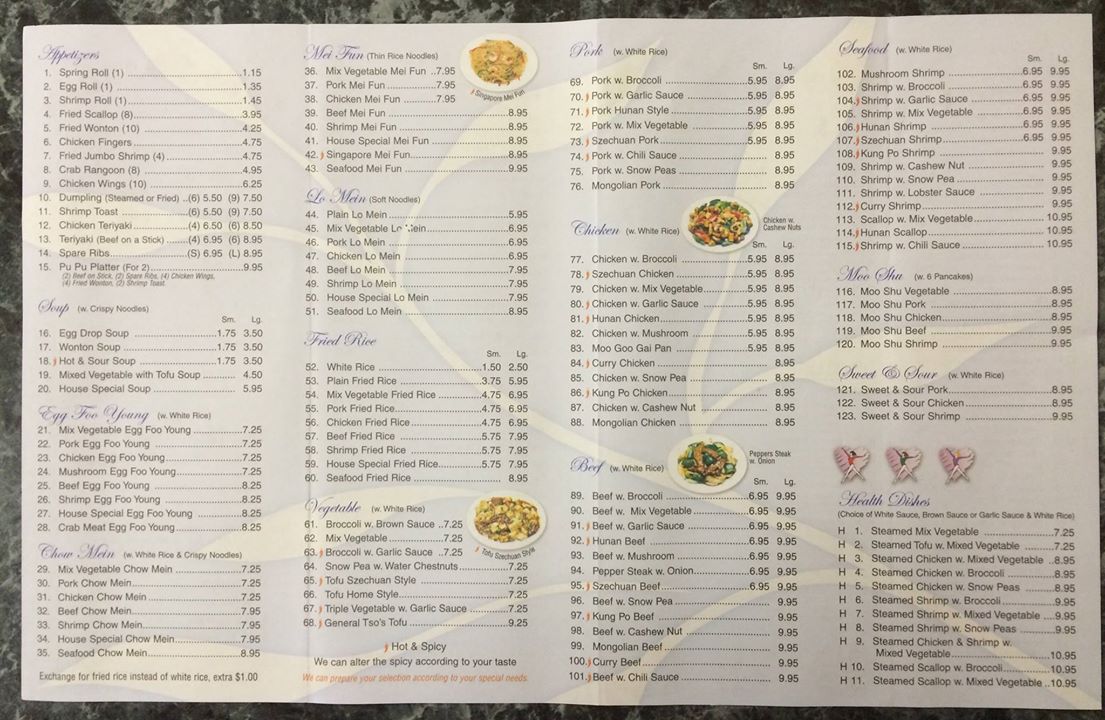 Appetizers
1. Spring Roll (1) 1.15
2. Egg Roll (1) 1.35
3. Shrimp Roll (1) 1.45
4. Fried Scallop (8) 3.95
5. Fried Wonton (10) 4.25
6. Chicken Fingers 4.75
7. Fried Jumbo Shrimp (4) 4.75
8. Crab Rangoon (8) 4.95
9. Chicken Wings (10) 6.25
10. Dumpling (Steamed or Fried) ..(6) 5.50 (9) 7.50
11. Shrimp Toast (6) 5.50 (9) 7.50
12. Chicken Teriyaki (4) 6.50 (6) 8.50
13. Teriyaki (Beef on a Stick) (4) 6.95 (6) 8.95
14. Spare Ribs (S) 6.95 (L) 8.95
15. Pu Pu Platter (For 2) 9.95
(2) Beef on Stick, (2) Spare Ribs, (4) Chicken Wings,
(4) Fried Wonton, (2) Shrimp Toast.
Soup (w. Crispy Noodles)
Sm. Lg.
16. Egg Drop Soup 1.75 3.50
17. Wonton Soup 1.75 3.50
18. Hot & Sour Soup 1.75 3.50
19. Mixed Vegetable with Tofu Soup 4.50
20. House Special Soup 5.95
Egg Foo Young (w. White Rice)
21. Mix Vegetable Egg Foo Young 7.25
22. Pork Egg Foo Young 7.25
23. Chicken Egg Foo Young 7.25
24. Mushroom Egg Foo Young 7.25
25. Beef Egg Foo Young 8.25
26. Shrimp Egg Foo Young 8.25
27. House Special Egg Foo Young 8.25
28. Crab Meat Egg Foo Young 8.25
Chow Mein (w. White Rice & Crispy Noodles)
29. Mix Vegetable Chow Mein 7.25
30. Pork Chow Mein 7.25
31. Chicken Chow Mein 7.25
32. Beef Chow Mein 7.95
33. Shrimp Chow Mein 7.95
34. House Special Chow Mein 7.95
35. Seafood Chow Mein 8.95
Exchange for fried rice instead of white rice, extra $1.00
Mei Fun (Thin Rice Noodles)
36. Mix Vegetable Mei Fun ..7.95
37. Pork Mei Fun 7.95
38. Chicken Mei Fun 7.95
Singapore Mei Fun
39. Beef Mei Fun 8.95
40. Shrimp Mei Fun 8.95
41. House Special Mei Fun 8.95
42. Singapore Mei Fun 8.95
43. Seafood Mei Fun 9.95
Lo Mein (Soft Noodles)
44. Plain Lo Mein 5.95
45. Mix Vegetable Lo Mein 6.95
46. Pork Lo Mein 6.95
47. Chicken Lo Mein 6.95
48. Beef Lo Mein 7.95
49. Shrimp Lo Mein 7.95
50. House Special Lo Mein 7.95
51. Seafood Lo Mein 8.95
Fried Rice
Sm. Lg.
52. White Rice 1.50 2.50
53. Plain Fried Rice 3.75 5.95
54. Mix Vegetable Fried Rice 4.75 6.95
55. Pork Fried Rice 4.75 6.95
56. Chicken Fried Rice 4.75 6.95
57. Beef Fried Rice 5.75 7.95
58. Shrimp Fried Rice 5.75 7.95
59. House Special Fried Rice 5.75 7.95
60. Seafood Fried Rice 8.95
Vegetable (w. White Rice)
61. Broccoli w. Brown Sauce ..7.25
62. Mix Vegetable 7.25
63. Broccoli w. Garlic Sauce ..7.25
Tofu Szechuan Style
64. Snow Pea w. Water Chestnuts 7.25
65. Tofu Szechuan Style 7.25
66. Tofu Home Style 7.25
67. Triple Vegetable w. Garlic Sauce 7.25
68. General Tso's Tofu 9.25
Hot & Spicy
We can alter the spicy according to your taste
We can prepare your selection according to your special needs
Pork (w. White Rice)
Sm. Lg.
69. Pork w. Broccoli 5.95 8.95
70. Pork w. Garlic Sauce 5.95 8.95
71. Pork Hunan Style 5.95 8.95
72. Pork w. Mix Vegetable 5.95 8.95
73. Szechuan Pork 5.95 8.95
74. Pork w. Chili Sauce 8.95
75. Pork w. Snow Peas 8.95
76. Mongolian Pork 8.95
Chicken w.
Cashew Nuts
Chicken (w. White Rice)
Sm. Lg.
77. Chicken w. Broccoli 5.95 8.95
78. Szechuan Chicken 5.95 8.95
79. Chicken w. Mix Vegetable 5.95 8.95
80. Chicken w. Garlic Sauce 5.95 8.95
81. Hunan Chicken 5.95 8.95
82. Chicken w. Mushroom 5.95 8.95
83. Moo Goo Gai Pan 5.95 8.95
84. Curry Chicken 8.95
85. Chicken w. Snow Pea 8.95
86. Kung Po Chicken 8.95
87. Chicken w. Cashew Nut 8.95
88. Mongolian Chicken 8.95
Peppers Steak
w. Onion
Beef (w. White Rice)
Sm. Lg.
89. Beef w. Broccoli 6.95 9.95
90. Beef w. Mix Vegetable 6.95 9.95
91. Beef w. Garlic Sauce 6.95 9.95
92. Hunan Beef 6.95 9.95
93. Beef w. Mushroom 6.95 9.95
94. Pepper Steak w. Onion 6.95 9.95
95. Szechuan Beef 6.95 9.95
96. Beef w. Snow Pea 9.95
97. Kung Po Beef 9.95
98. Beef w. Cashew Nut 9.95
99. Mongolian Beef 9.95
100. Curry Beef 9.95
101. Beef w. Chili Sauce 9.95
Seafood (w. White Rice)
Sm. Lg.
102. Mushroom Shrimp 6.95 9.95
103. Shrimp w. Broccoli 6.95 9.95
104. Shrimp w. Garlic Sauce 6.95 9.95
105. Shrimp w. Mix Vegetable 6.95 9.95
106. Hunan Shrimp 6.95 9.95
107. Szechuan Shrimp 6.95 9.95
108. Kung Po Shrimp 9.95
109. Shrimp w. Cashew Nut 9.95
110. Shrimp w. Snow Pea 9.95
111. Shrimp w. Lobster Sauce 9.95
112. Curry Shrimp 9.95
113. Scallop w. Mix Vegetable 10.95
114. Hunan Scallop 10.95
115. Shrimp w. Chili Sauce 10.95
Moo Shu (w. 6 Pancakes)
116. Moo Shu Vegetable 8.95
117. Moo Shu Pork 8.95
118. Moo Shu Chicken 8.95
119. Moo Shu Beef 9.95
120. Moo Shu Shrimp 9.95
Sweet & Sour (w. White Rice)
121. Sweet & Sour Pork 8.95
122. Sweet & Sour Chicken 8.95
123. Sweet & Sour Shrimp 9.95
Health Dishes
(Choice of White Sauce, Brown Sauce or Garlic Sauce & White Rice)
H 1. Steamed Mix Vegetable 7.25
H 2. Steamed Tofu w. Mixed Vegetable 7.25
H 3. Steamed Chicken w. Mixed Vegetable ..8.95
H 4. Steamed Chicken w. Broccoli 8.95
H 5. Steamed Chicken w. Snow Peas 8.95
H 6. Steamed Shrimp w. Broccoli 9.95
H 7. Steamed Shrimp w. Mixed Vegetable 9.95
H 8. Steamed Shrimp w. Snow Peas 9.95
H 9. Steamed Chicken & Shrimp w.
Mixed Vegetable 10.95
H 10. Steamed Scallop w. Broccoli 10.95
H 11. Steamed Scallop w. Mixed Vegetable ..10.95